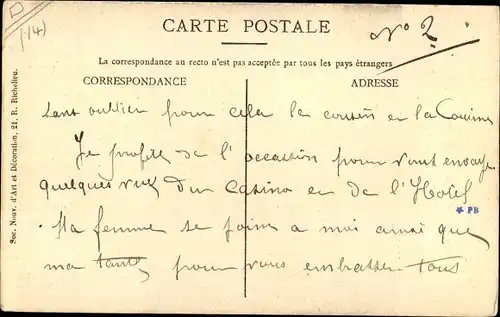 D
(14)
CARTE POSTALE
N° 2
La correspondance au recto n'est pas acceptée par tous les pays étrangers
CORRESPONDANCE
ADRESSE
Sans oublier pour cela le cousin et la Cousine
Je profite de l'occassion pour vous envoyer
quelques vues du Casino et de l'Hotel
Ma femme se joint a moi ainsi que
ma tante pour vous embrasser tous
PB
Soc. Nouv. d'Art et Décoration, 21, R. Richelieu.